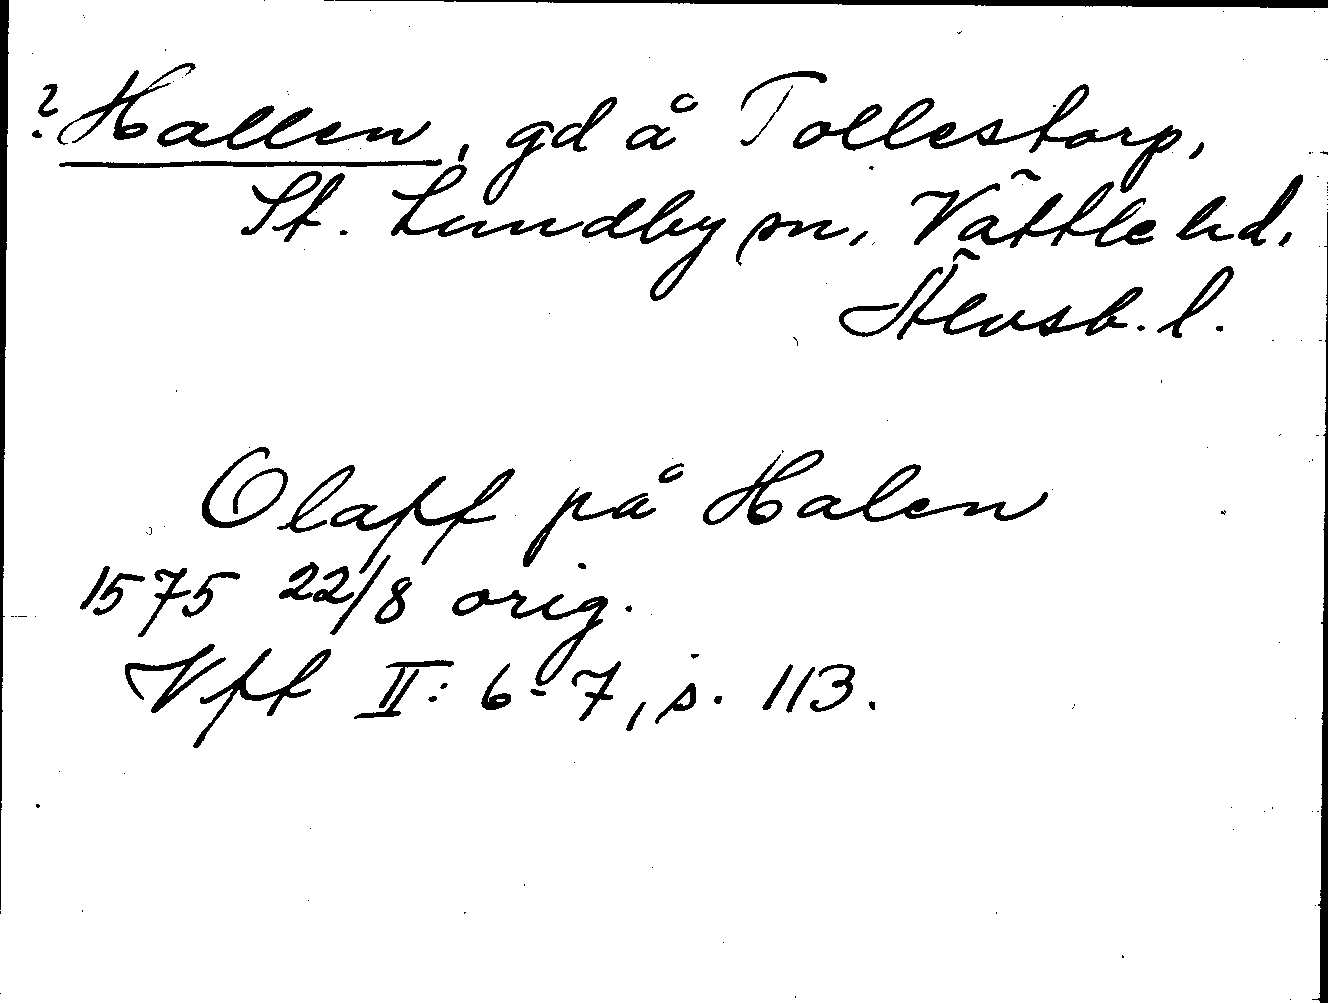 ? Hallen, gd å Tollestorp,
St. Lundby sn, Vättle hd.
Älvsb. l.
Olaff på Halen
1575 22/8 orig.
Vff II: 6-7, s. 113.